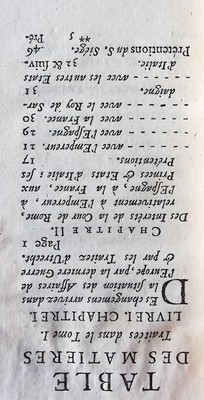 TABLE
DES MATIERES
Traitées dans le Tome I.
LIVRE I. CHAPITRE I.
DEs changemens arrivez dans
la situation des Affaires de
l'Europe, par la derniere Guerre
& par les Traitez d'Utrecht.
Page 1
CHAPITRE II.
Des Interêts de la Cour de Rome,
relativement à l'Empereur, à
l'Espagne, à la France, aux
Princes & Etats d'Italie & ses
Prétentions. 17
--- avec l'Empereur. 21
--- avec l'Espagne. 29
--- avec la France. 30
--- avec le Roy de Sar-
daigne. 31
--- avec les autres Etats
d'Italie. 32 & suiv.
Prétentions du S. Siége. 46
** 5 Pré-